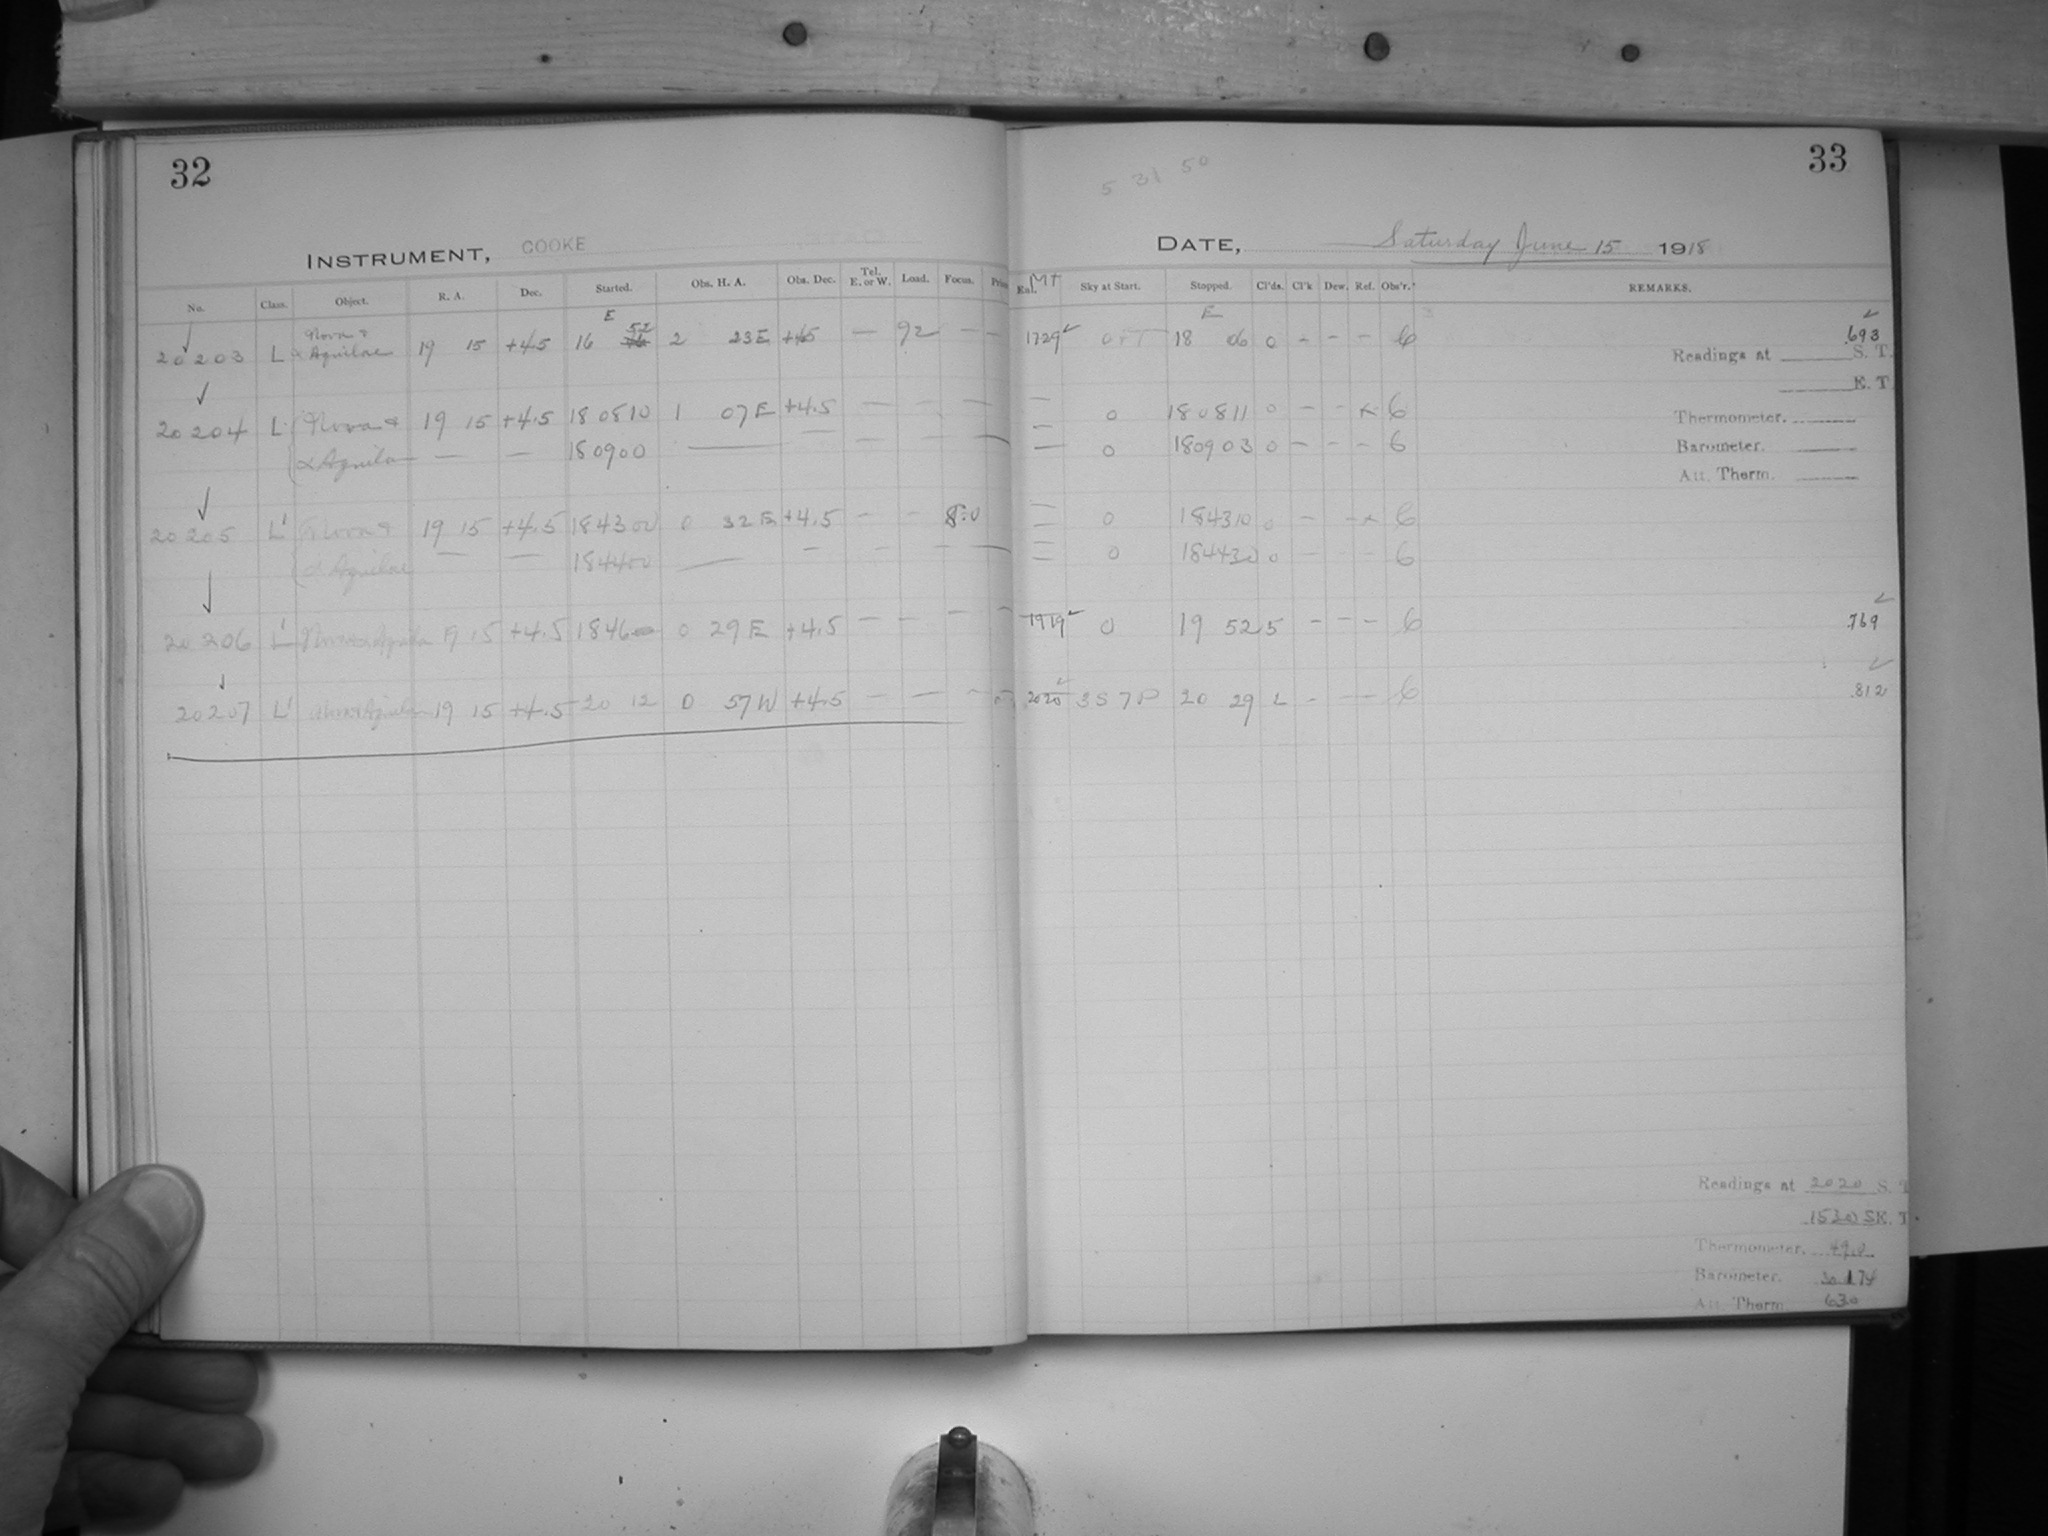 32
INSTRUMENT, COOKE
No. Class. Object. R. A. Dec. Started. Obs. H. A. Obs. Dec. Tel. E. or W. Load. Focus.
E
52
20203 L Nova & α Aquilae 19 15 +4.5 16 2 23E +4.5 — 92 — —
20204 L Nova & 19 15 +4.5 180810 1 07E +4.5 — — —
α Aquilae — — 180900 — — — — —
20205 L' Nova & 19 15 +4.5 184300 0 32E +4.5 — — 8.0
α Aquilae — — 184400 — — — — —
20206 L' Nova & Aquilae 19 15 +4.5 1846 0 29E +4.5 — — —
20207 L' Nova & Aquilae 19 15 +4.5 20 12 0 57W +4.5 — — -
33
5 31 50
DATE, Saturday June 15 1918
MT
Sky at Start. Stopped. Cl'ds. Cl'k Dew. Ref. Obs'r. REMARKS.
E
1729 18 06 0 - - - 6 .693
Readings at S. T.
E. T.
— 0 180811 0 - - 6
Thermometer.
— 0 180903 0 - - - 6
Barometer.
Att. Therm.
— 0 184310 0 - - 6
— 0 184430 0 - - - 6
1919 0 19 52 5 - - - 6 .769
2020 3S7P 20 29 2 - - - 6 .812
Readings at 2020 S. T.
1530 E. T.
Thermometer. 49.0
Barometer. 30.174
Att. Therm. 63.0